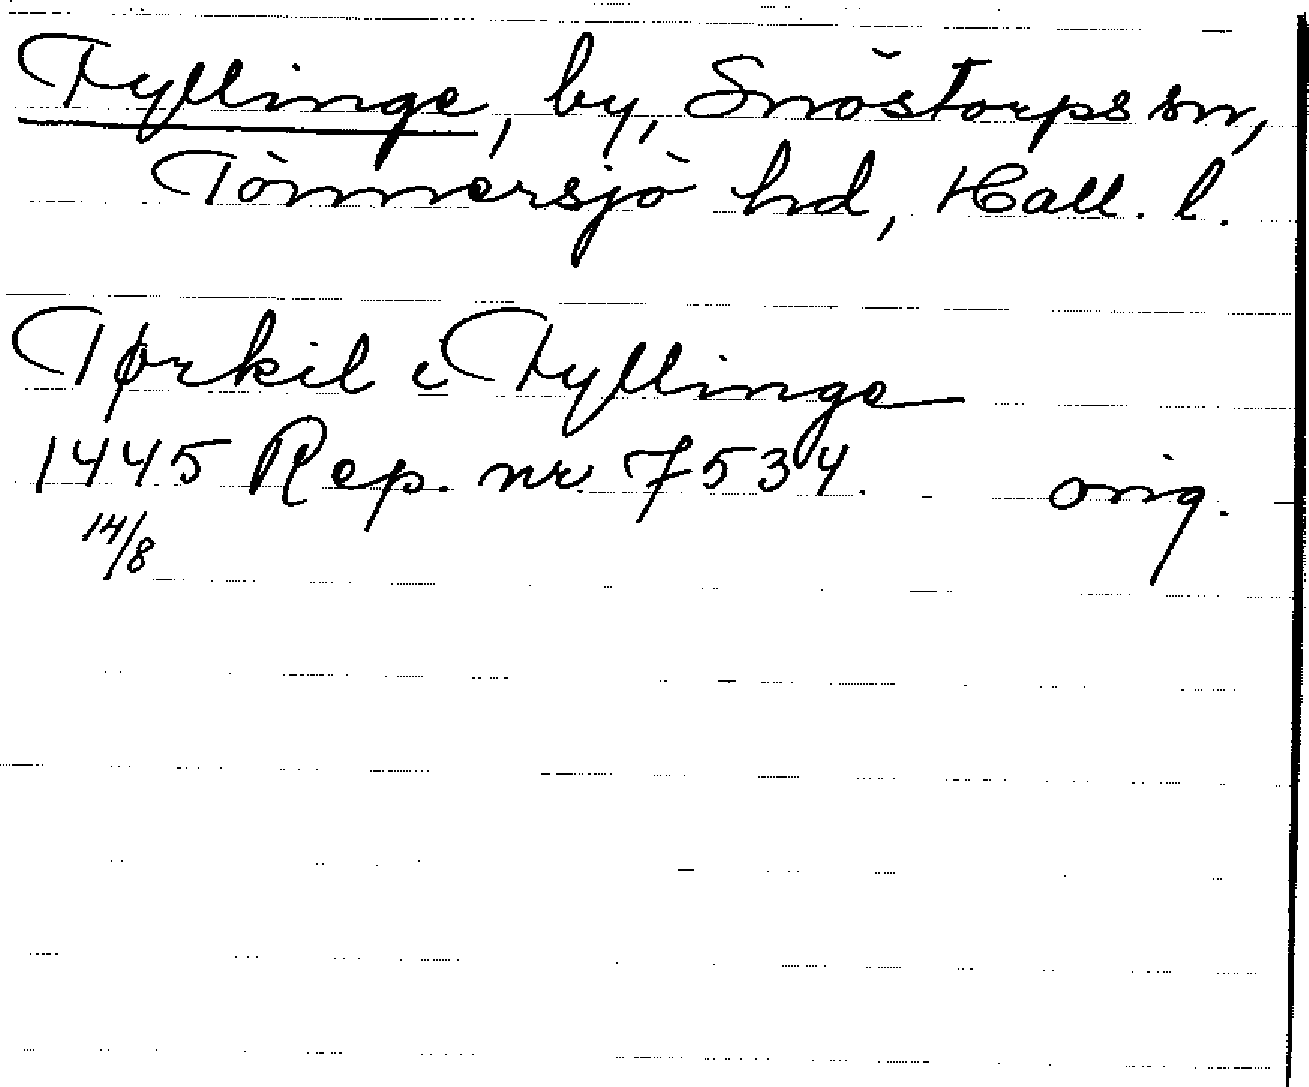 Fyllinge, by, Snöstorps sn,
Tönnersjö hd, Hall. l.
Tørkil i Fyllinge
1445 Rep. nr 7534. orig.
14/8